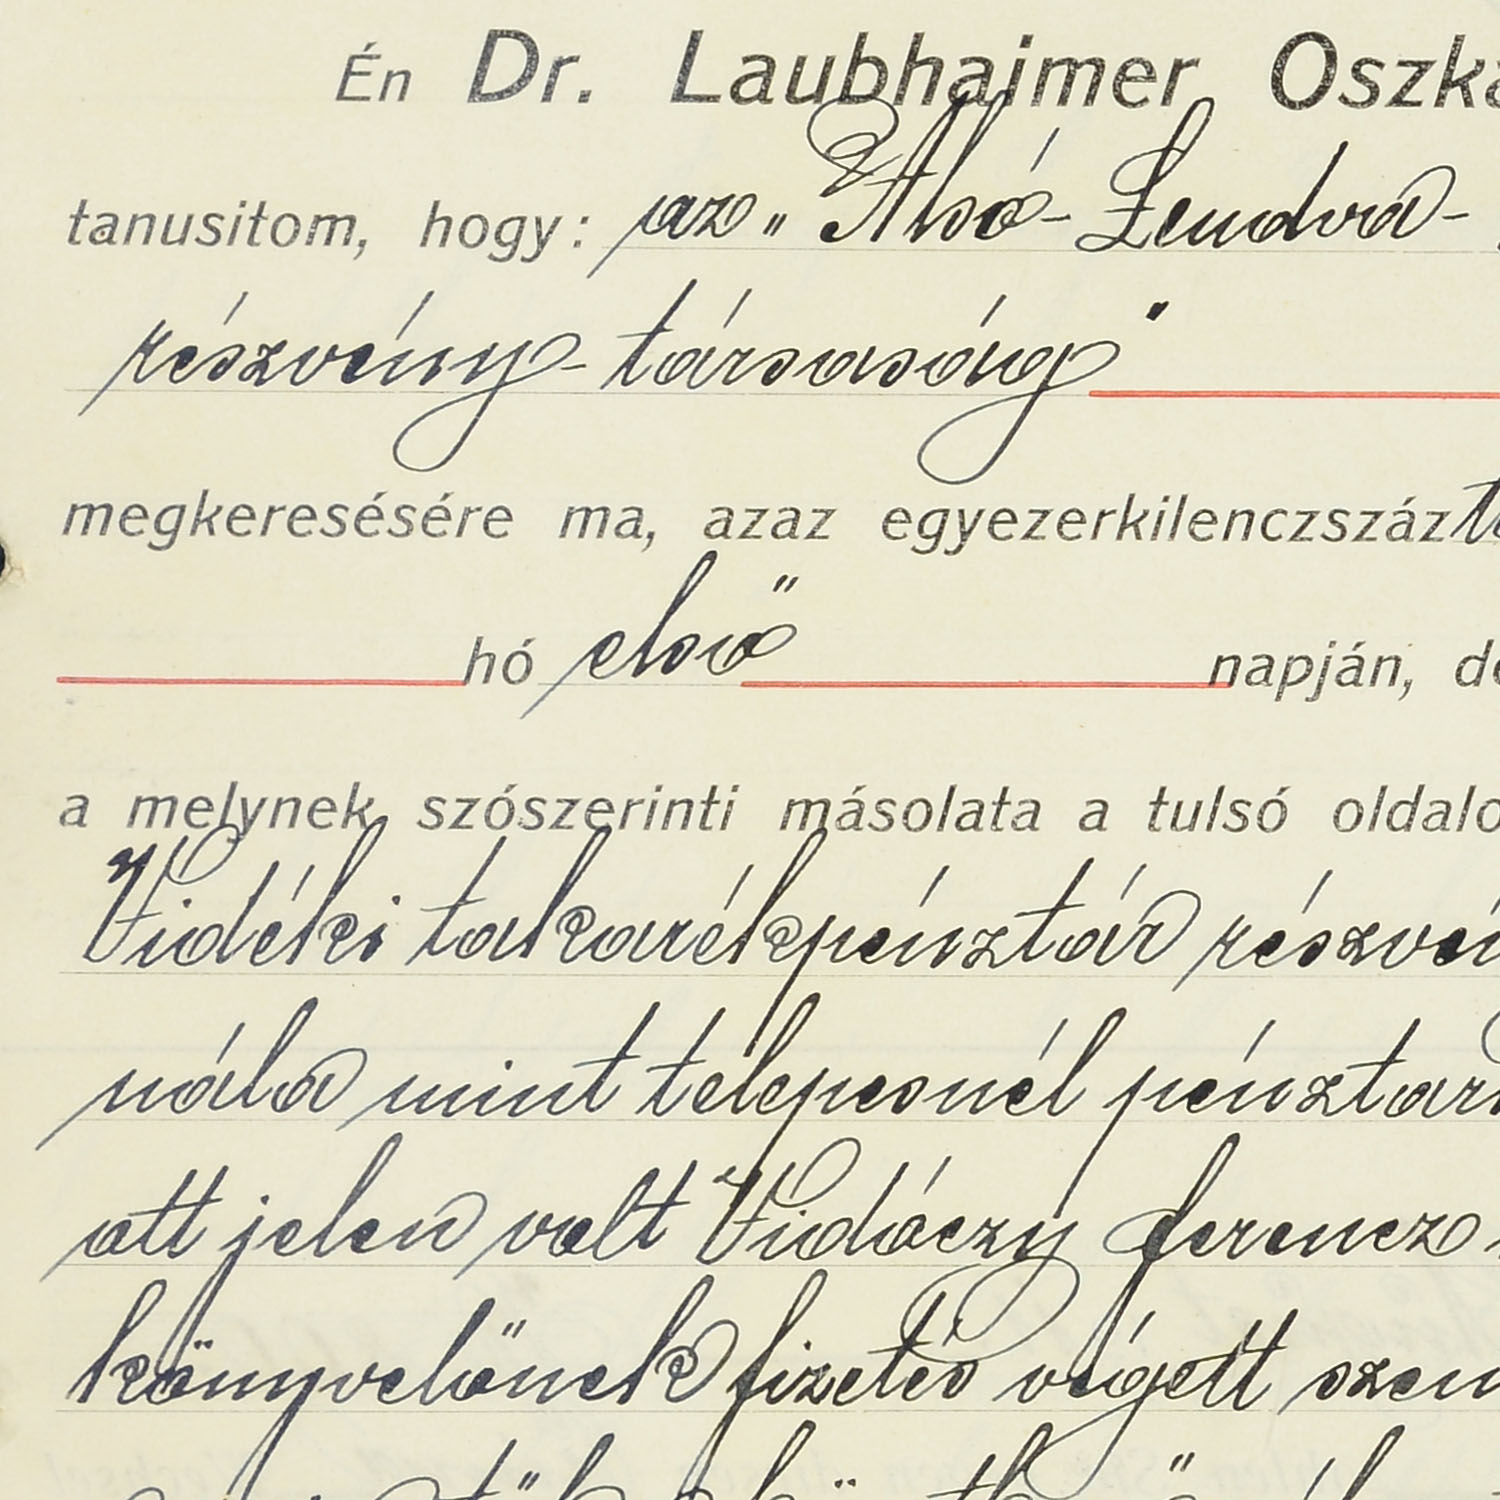 Én Dr. Laubhaimer Oszká
tanusitom, hogy: az „Alsó-Lendva-
részvény-társaság"
megkeresésére ma, azaz egyezerkilenczszázt
hó első napján, de
a melynek szószerinti másolata a tulsó oldalo
Vidéki takarékpénztár részvén
nála mint telepesnél pénztár
att jelen volt Vidóczy Ferencz
könyvelőnek fizetés végett szem